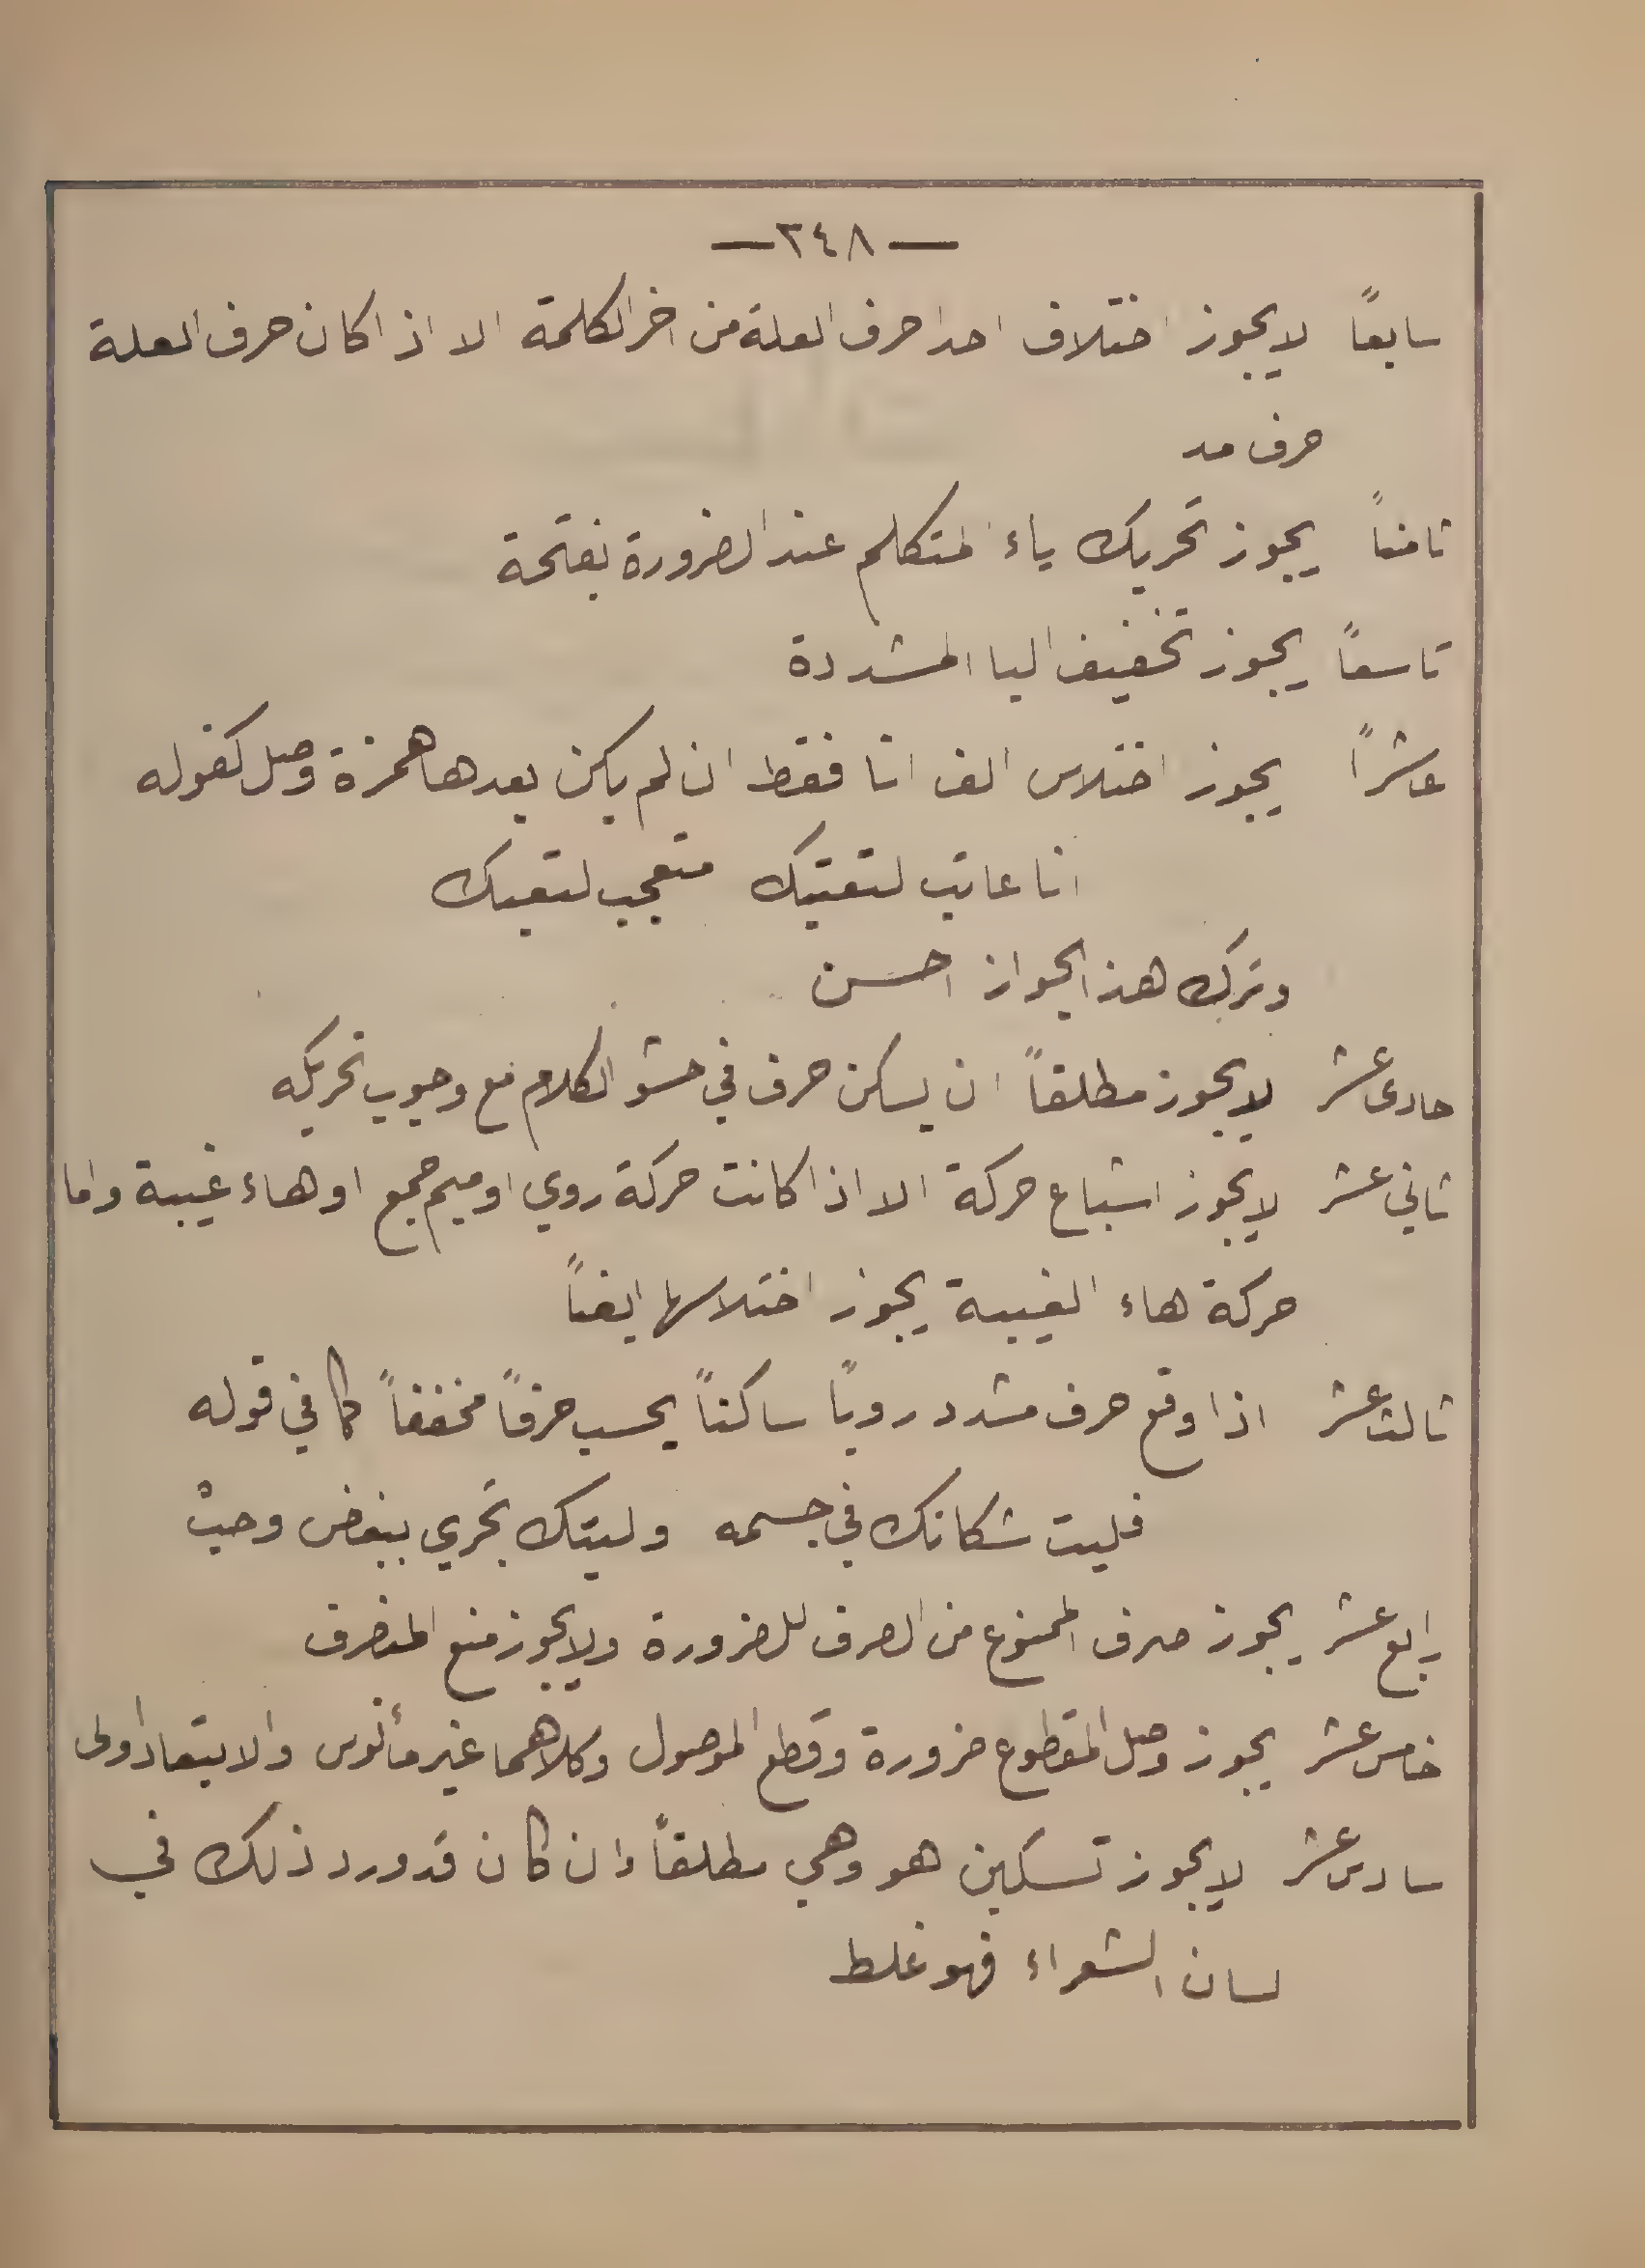 — ٣٤٨ —
سابعاً لا يجوز اختلاف احد احرف العلة من اخر الكلمة الا اذا كان حرف العلة
حرف مد
ثامناً يجوز تحريك ياء المتكلم عند الضرورة بفتحة
تاسعاً يجوز تخفيف اليا المشددة
عاشراً يجوز اختلاس الف انا فقط ان لم يكن بعدها همزة وصل كقوله
انا عاتب لتعتبك متعجب لتعبك
وترك هذا الجواز احسن
حادي عشر لا يجوز مطلقاً ان يسكن حرف في حشو الكلام مع وجوب تحريكه
ثاني عشر لا يجوز اشباع حركة الا اذا كانت حركة روي او ميم جمع او هاء غيبة واما
حركة هاء الغيبة يجوز اختلاسها ايضاً
ثالث عشر اذا وقع حرف مشدد روياً ساكناً يحسب حرفاً مخففاً كما في قوله
فليت شكاتك في جسمه وليتك تجزي ببغض وحبْ
رابع عشر يجوز صرف الممنوع من الصرف للضرورة ولا يجوز منع المنصرف
خامس عشر يجوز وصل المقطوع ضرورة وقطع الموصول وكلاهما غير مأنوس والابتعاد اولى
سادس عشر لا يجوز تسكين هو وهي مطلقاً وان كان قد ورد ذلك في
لسان الشعراء فهو غلط